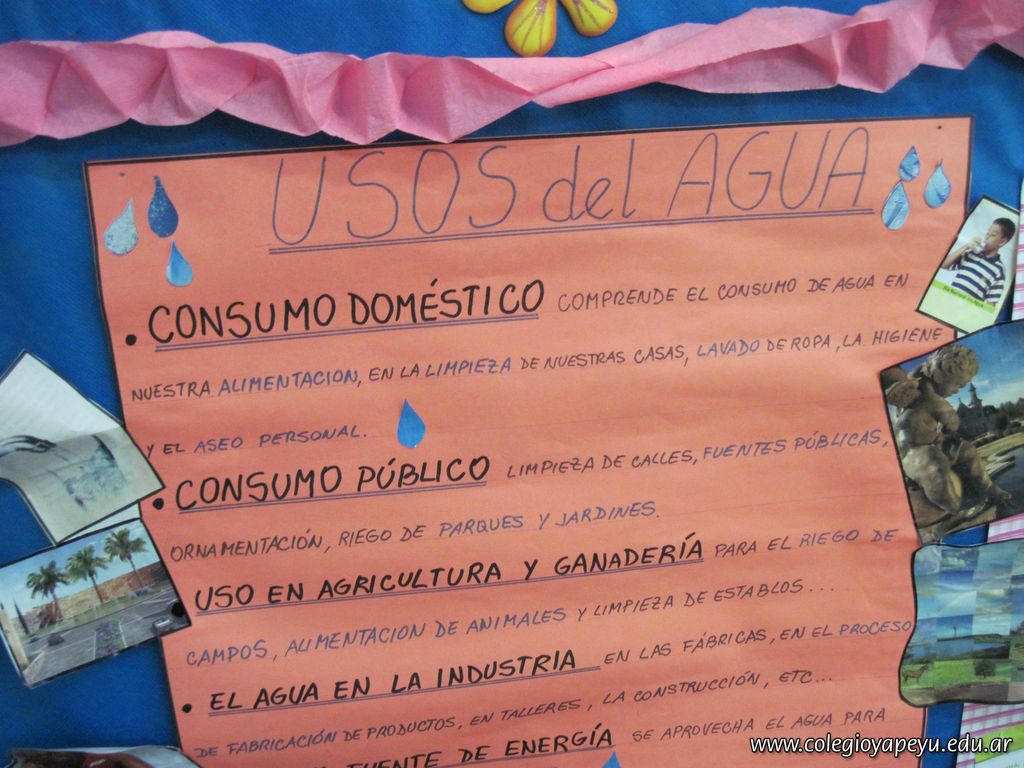 USOS del AGUA
• CONSUMO DOMÉSTICO COMPRENDE EL CONSUMO DE AGUA EN
NUESTRA ALIMENTACION, EN LA LIMPIEZA DE NUESTRAS CASAS, LAVADO DE ROPA, LA HIGIENE
Y EL ASEO PERSONAL.
• CONSUMO PÚBLICO LIMPIEZA DE CALLES, FUENTES PÚBLICAS,
ORNAMENTACIÓN, RIEGO DE PARQUES Y JARDINES.
• USO EN AGRICULTURA Y GANADERÍA PARA EL RIEGO DE
CAMPOS, ALIMENTACION DE ANIMALES Y LIMPIEZA DE ESTABLOS...
• EL AGUA EN LA INDUSTRIA EN LAS FÁBRICAS, EN EL PROCESO
DE FABRICACIÓN DE PRODUCTOS, EN TALLERES, LA CONSTRUCCIÓN, ETC...
FUENTE DE ENERGÍA SE APROVECHA EL AGUA PARA
www.colegioyapeyu.edu.ar